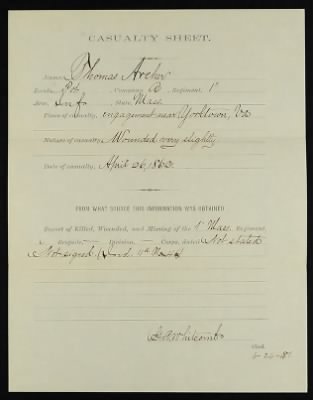 CASUALTY SHEET.
Name, Thomas Archer
Rank, Pvt. Company, D, Regiment, 1"
Arm, Inf., State, Mass.
Place of casualty, engagement near Yorktown, Va
Nature of casualty, Wounded very slightly
Date of casualty, April 26, 186
FROM WHAT SOURCE THIS INFORMATION WAS OBTAINED.
Report of Killed, Wounded, and Missing of the 1" Mass. Regiment,
Brigade, — Division, — Corps, dated Not stated
Not signed.
Clerk.